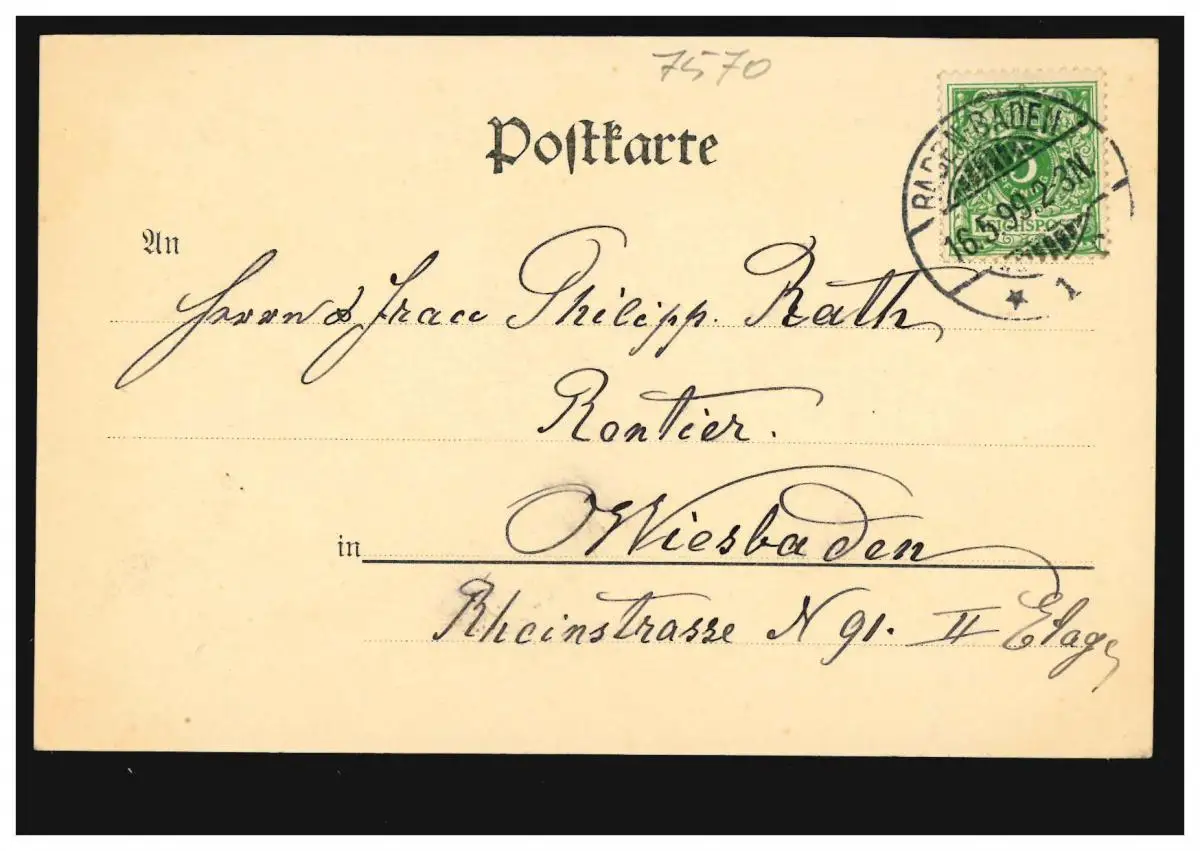 7570
Postkarte
BADEN-BADEN
16.5.99.2-3N.
* 1
5
PFENNIG
REICHSPOST
An
Herrn & Frau Philipp. Rath
Rentier.
in Wiesbaden
Rheinstrasse N 91. II Etage